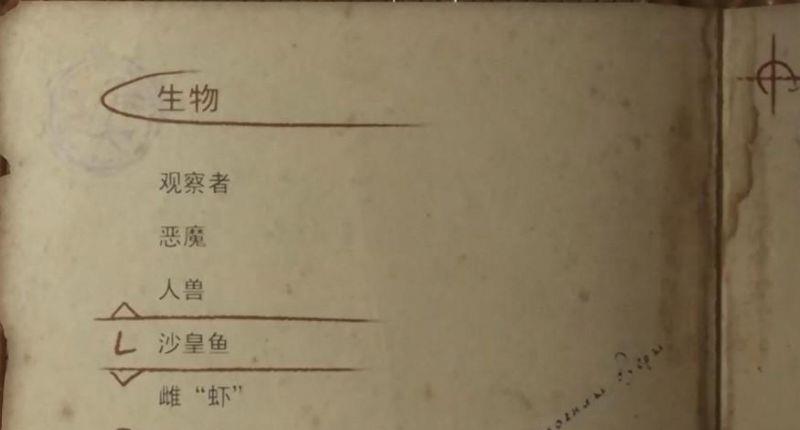 生物
观察者
恶魔
人兽
沙皇鱼
雌“虾”